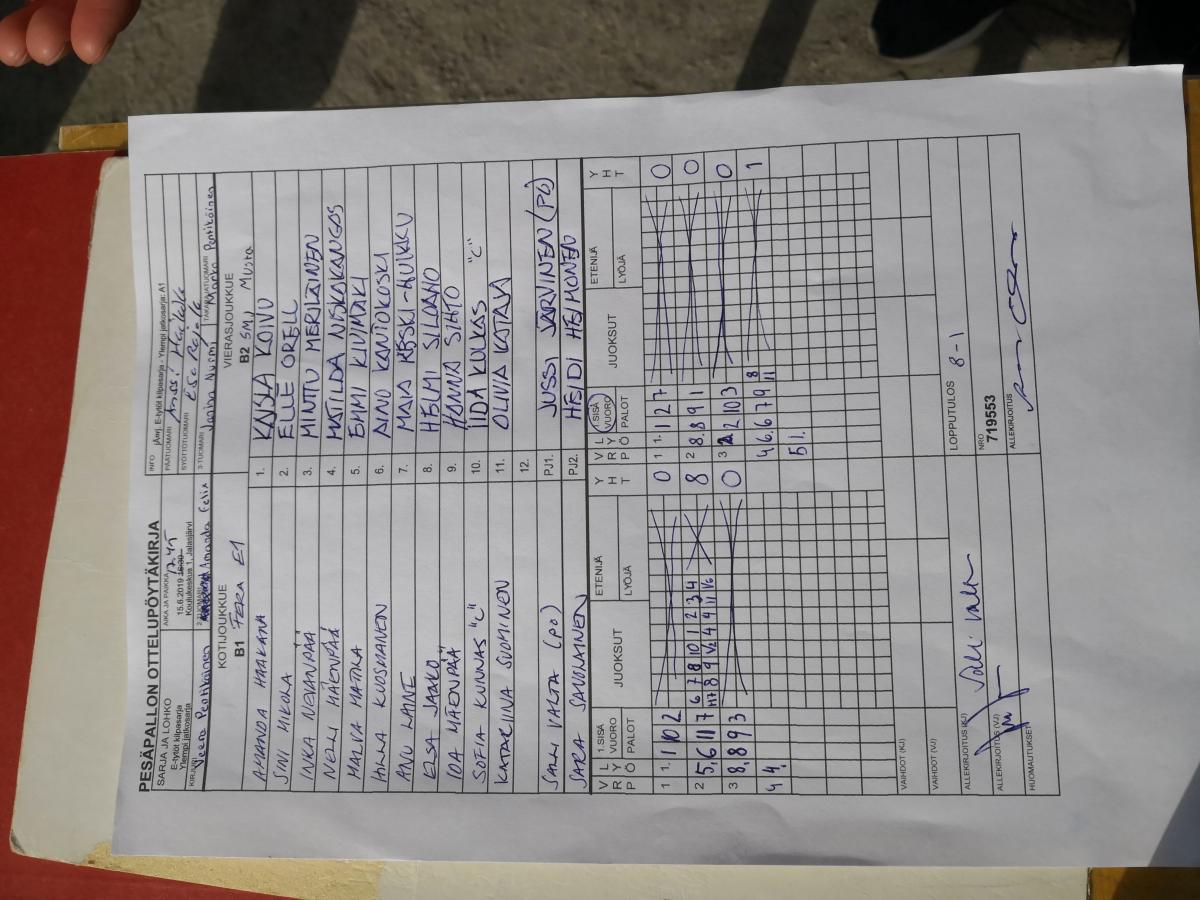 PESÄPALLON OTTELUPÖYTÄKIRJA
SARJA JA LOHKO
E-tytöt kilpasarja
Ylempi jatkosarja
AIKA JA PAIKKA 17.45
15.6.2019
Koulukeskus 1, Jalasjärvi
INFO E-tytöt kilpasarja - Ylempi jatkosarja: A1
PÄÄTUOMARI
SYÖTTÖTUOMARI
KIRJURI Veera Pentikäinen
2-TUOMARI Amanda Felix
3-TUOMARI Janina Nurmi
TAKARAJATUOMARI Marko Pentikäinen
KOTIJOUKKUE
B1 Fera E1
VIERASJOUKKUE
B2 SMJ Musta
AMANDA HAAKANA 1. KAISLA KOIVU
SINI MIKOLA 2. ELLE ORELL
INKA NEVANPÄÄ 3. MINTTU MERILÄINEN
NELLI MÄENPÄÄ 4. MATILDA NISKAKANGAS
MALVA MATKA 5. EMMI KIVIMÄKI
HILLA KUOSMANEN 6. AINO KANTOKOSKI
ANU LAINE 7. MAIJA KESKI-HULKKU
ELSA JAAKO 8. HELMI SILDAHO
IDA MÄENPÄÄ 9. HONNA SIHTO
SOFIA KUNNAS "C" 10. IIDA KULKAS "C"
KATARIINA SUOMINEN 11. OLIVIA KATAJA
12.
SALLI VALTA (PO) PJ1. JUSSI JÄRVINEN (PÖ)
SARA SAVUNAINEN PJ2. HEIDI HEMONEN
VRP LYÖ 1.SISÄ VUORO PALOT JUOKSUT ETENIJÄ LYÖJÄ YHT
VRP LYÖ 1.SISÄ VUORO PALOT JUOKSUT ETENIJÄ LYÖJÄ YHT
1 1. 1 10 2 0 1 1. 1 2 7 0
2 5. 6 11 7 6 7 8 10 1 2 3 4 8 2 8. 8 9 1 0
H7 8 9 V2 4 4 11 V6
3 8. 8 9 3 0 3 2 2 10 3 0
4 4. 4 6. 6 7 9 8 1
11
5 1.
VAIHDOT (KJ)
VAIHDOT (VJ)
ALLEKIRJOITUS (KJ)
LOPPUTULOS 8-1
ALLEKIRJOITUS (VJ)
NRO
719553
HUOMAUTUKSET
ALLEKIRJOITUS